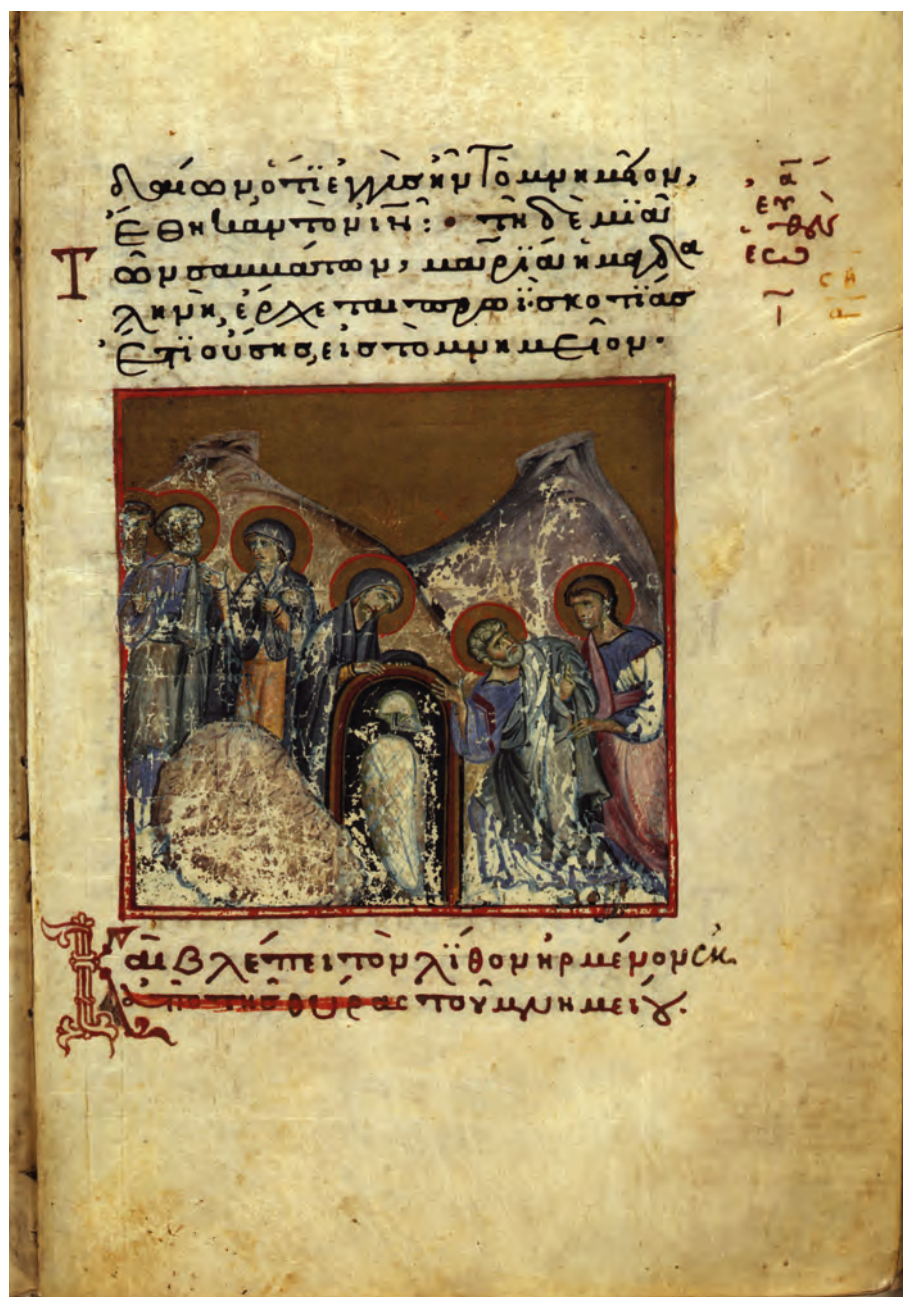 δαίων ὅτι ἐγγὺς ἦν τὸ μνημεῖον,
ἔθηκαν τὸν ιν̄: τῇ δὲ μϊᾷ
Τῶν σαββάτων, μαρϊα ἡ μαγδα
ληνὴ, ἔρχεται πρωῒ σκοτϊας
ἔτϊ οὔσης, εἰς τὸ μνημεῖον.
Καὶ βλέπει τὸν λϊθον ἠρμένον ἐκ
τῆς θύρας τοῦ μνημείου.